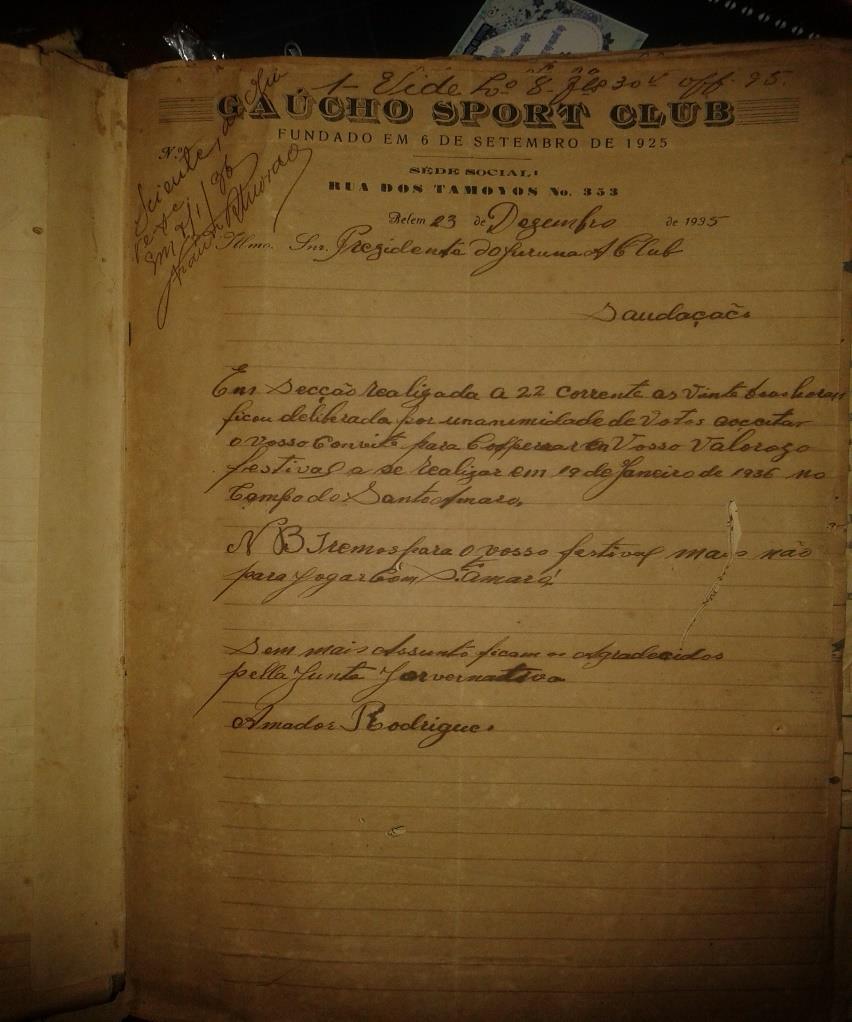 1- Vide Lº nº 8- fls 30v off. 95.
GAÚCHO SPORT CLUB
FUNDADO EM 6 DE SETEMBRO DE 1925
N.º
SÉDE SOCIAL:
RUA DOS TAMOYOS No. 353
Sciente,
Em 7/1/36
Belem 23 de Dezembro de 1935
Illmo. Snr. Prezidente do Juruna A Club
Saudação
Em Secção realizada a 22 corrente as vinte horas
ficou deliberada por unanimidade de Votos acceitar
o vosso Convite para Cooperar en Vosso Valorozo
festival a se realizar em 19 de Janeiro de 1936 no
Campo do Santo Amaro.
N B Iremos para o vosso festival mais não
para jogar Com S. Amaro!
Sem mais Assunto ficamos Agradecidos
pella Junta Governativa
Amador Rodrigues